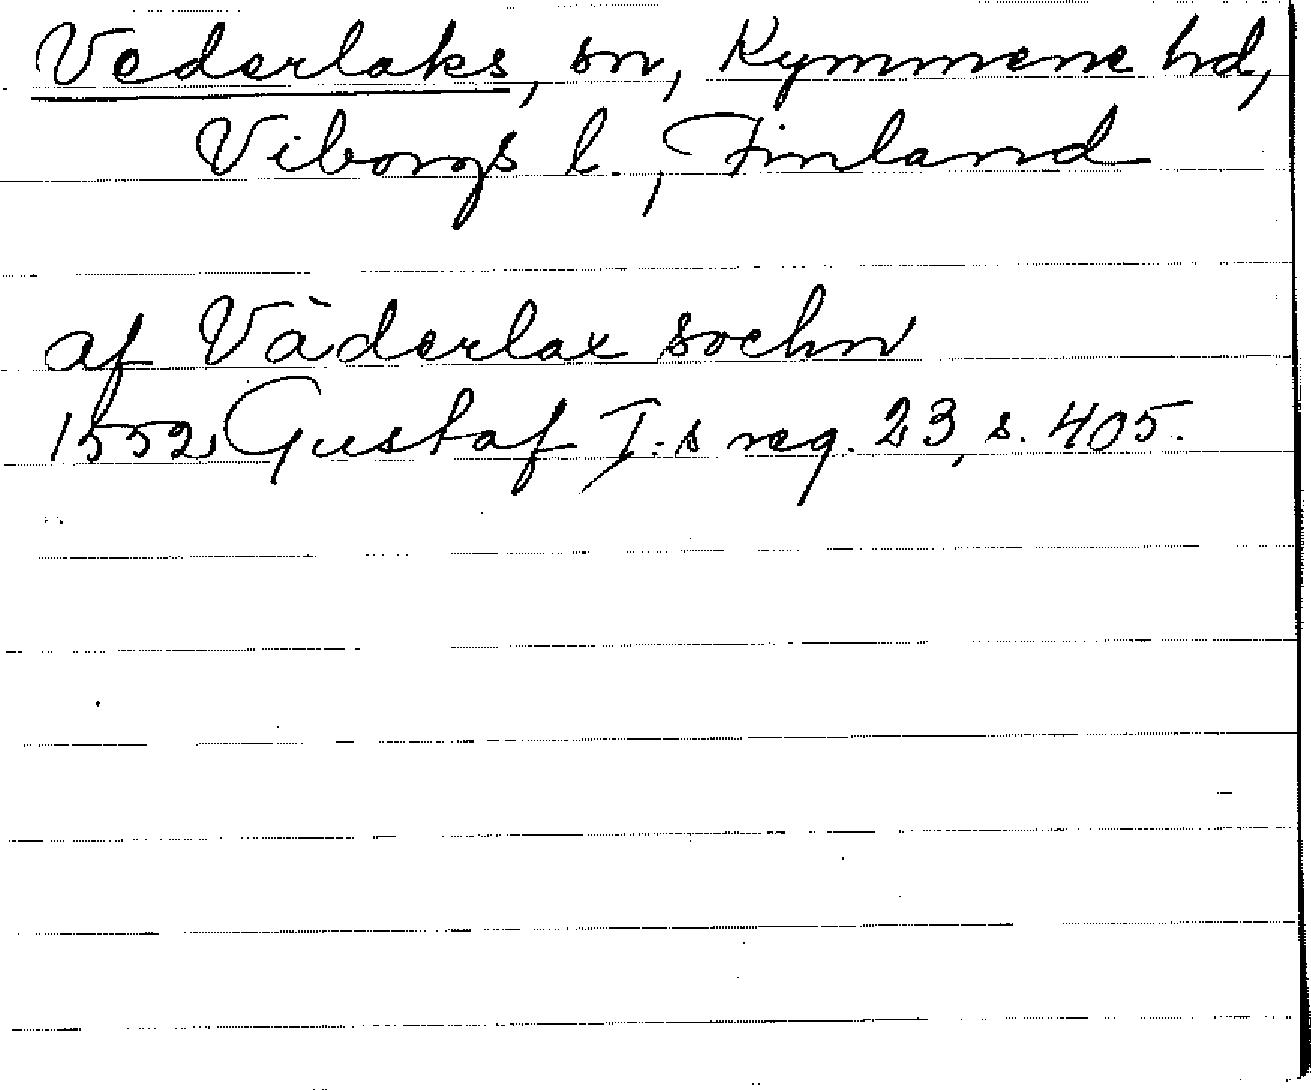 Vederlaks, sn, Kymmene hd,
Viborgs l., Finland
af Väderlax sochn
1552 Gustaf I:s reg. 23, s. 405.